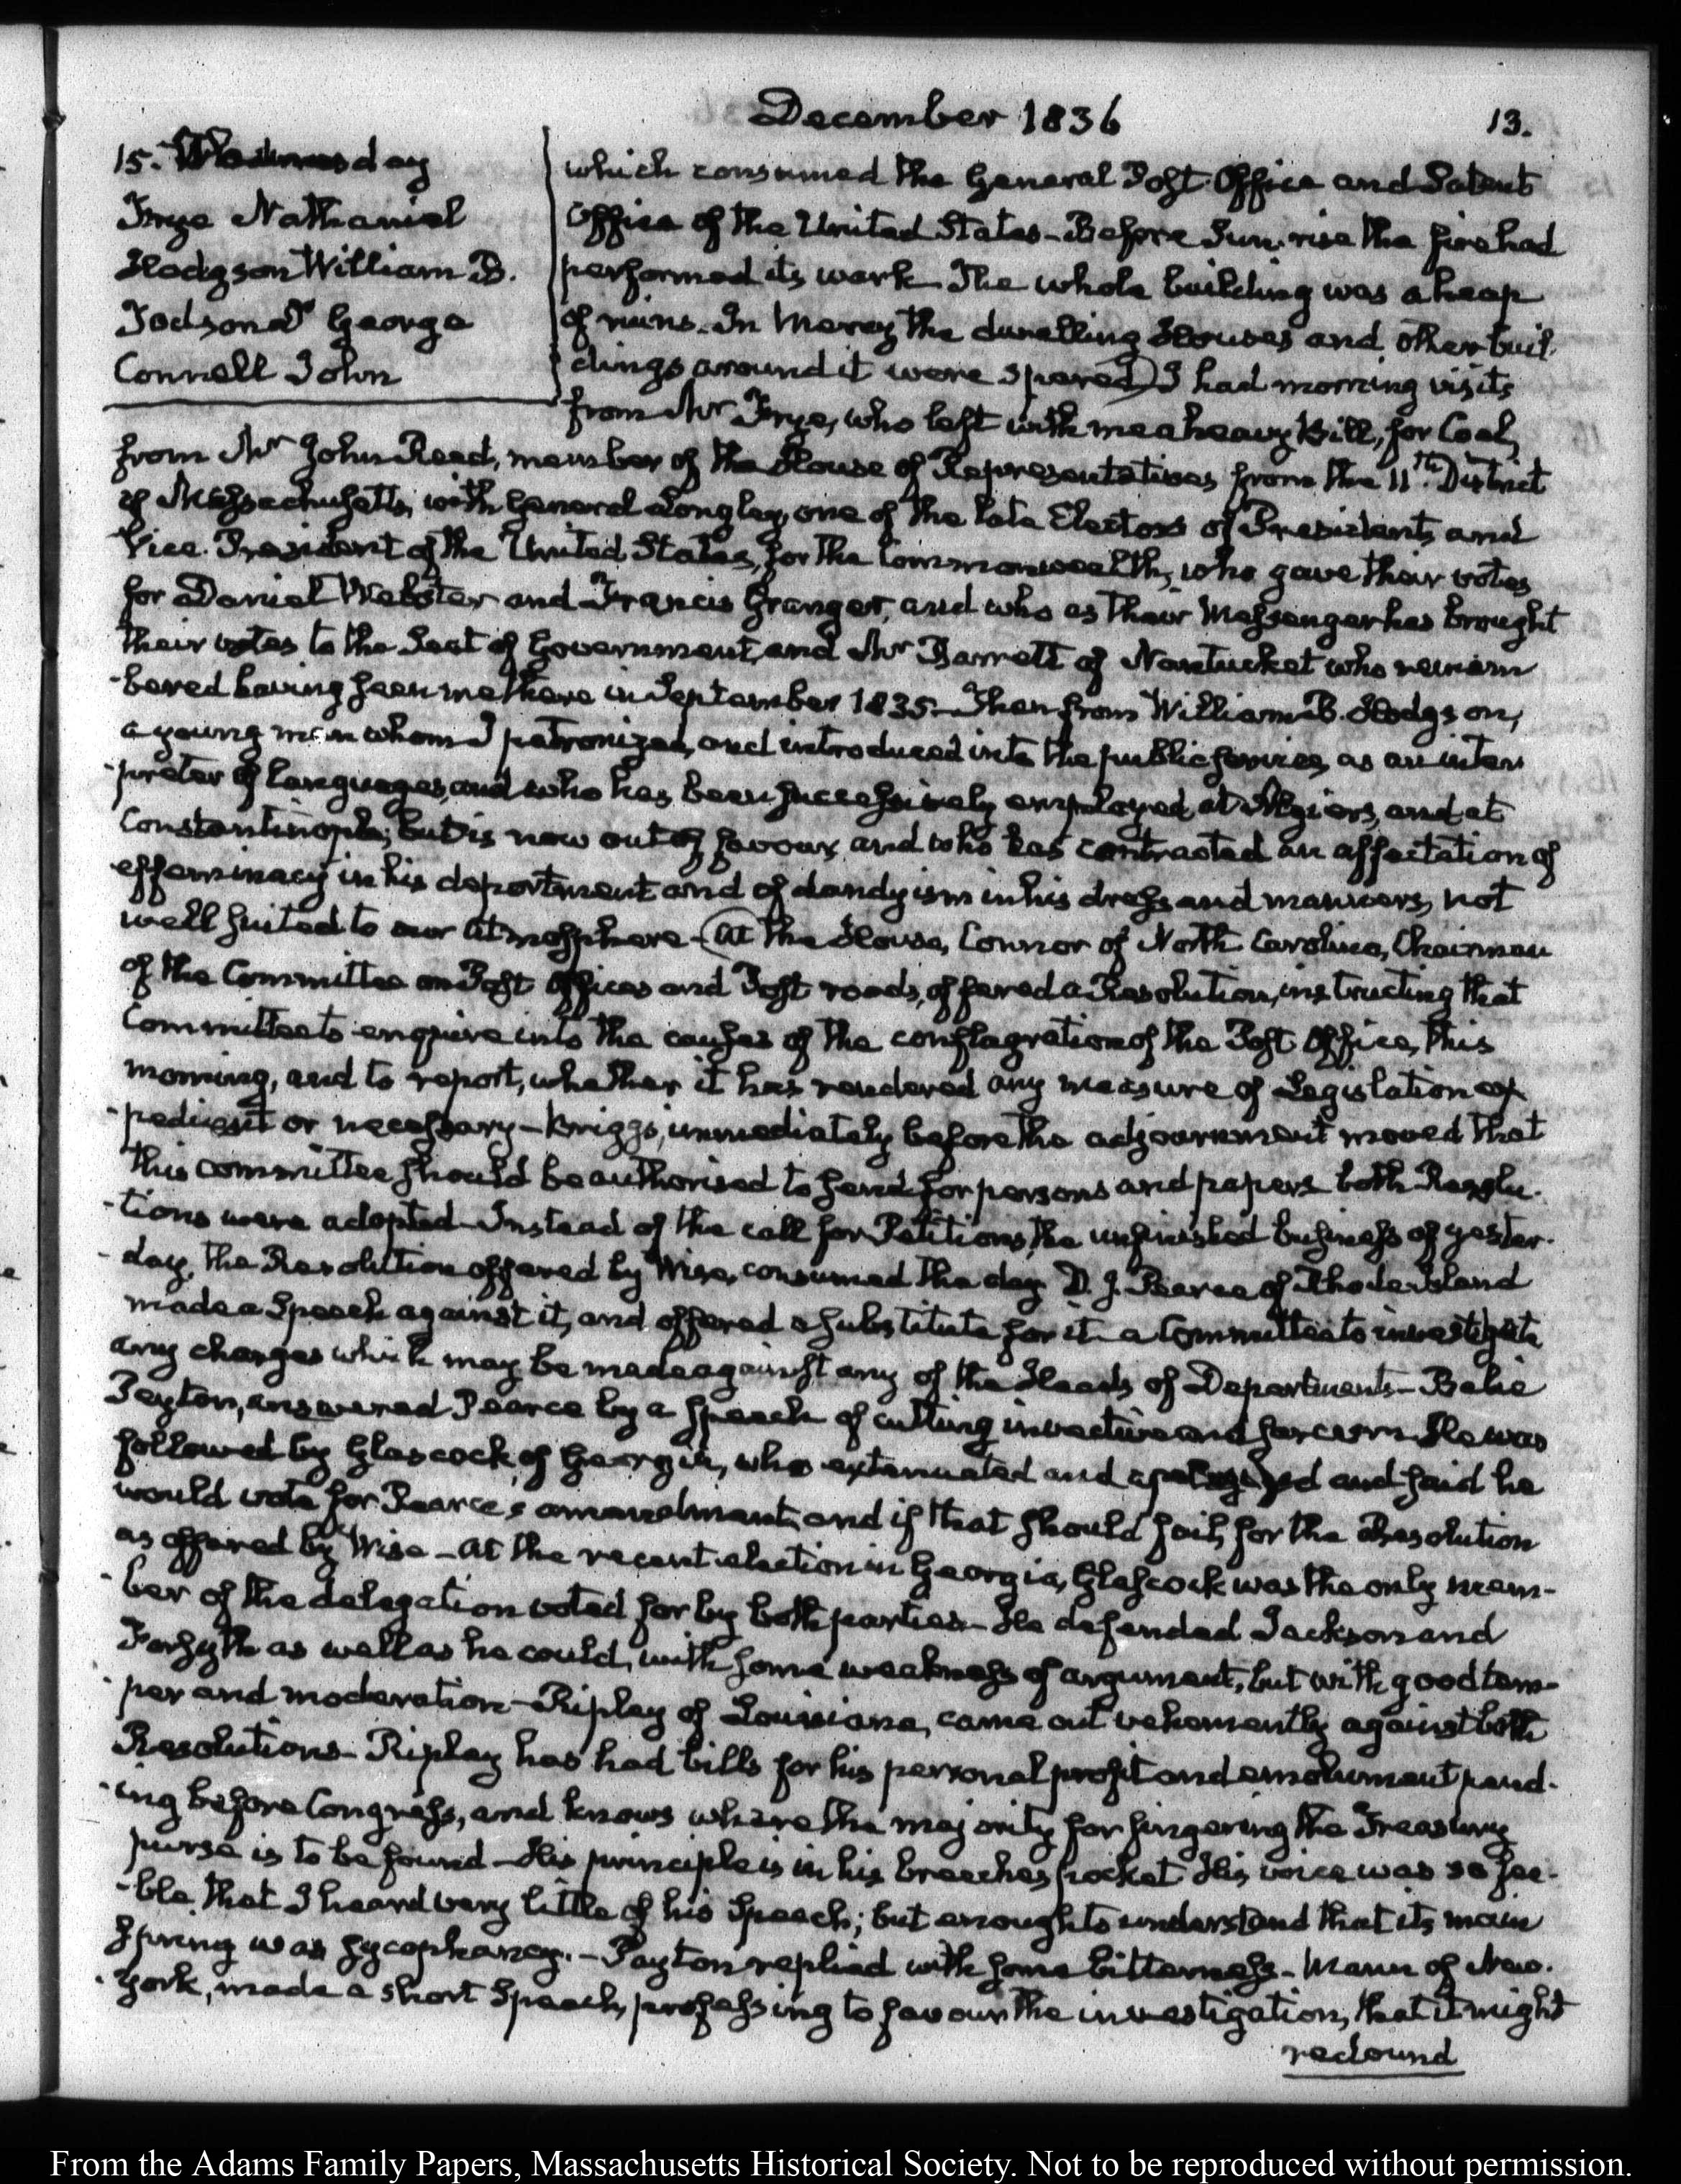 December 1836
13.
15. Wednesday
Frye Nathaniel
Hodgson William B.
George
Connell John
which consumed the General Post Office and Patent
Office of the United States - Before Sun-rise the fire had
performed its work. The whole building was a heap
of ruins. In Mercy the dwelling Houses and other buil-
dings around it were spared) I had morning visits
from Mr Frye, who left with me a heavy Bill, for Coal,
from Mr John Reed, member of the House of Representatives from the 11th. District
of Massachusetts, with General Longley, one of the late Electors of President, and
Vice-President of the United States, for the Commonwealth, who gave their votes
for Daniel Webster and Francis Granger, and who as their Messenger has brought
their votes to the Seat of Government, and Mr Barrett of Nantucket who remem
-bered having seen me there in September 1835 - Then from William B. Hodgson,
a young man whom I patronized, and introduced into the public service, as an inter
-preter of languages, and who has been successively employed at Algiers, and at
Constantinople; but is now out of favour, and who has contracted an affectation of
effeminacy in his deportment and of dandyism in his dress and manners, not
well suited to our atmosphere - (At the House, Connor of North Carolina, Chairman
of the Committee on Post Offices and Post roads, offered a Resolution, instructing that
Committee to enquire into the causes of the conflagration of the Post-Office, this
morning, and to report, whether it has rendered any measure of Legislation ex
-pedient or necessary - Briggs, immediately before the adjournment moved that
this committee should be authorised to send for persons and papers both Resolu-
-tions were adopted - Instead of the call for Petitions, the unfinished business of yester-
-day, the Resolution offered by Wise, consumed the day. D. J. Pearce of Rhode-Island
made a Speech against it, and offered a substitute for it - a Committee to investigate
any charges which may be made against any of the Heads of Departments - Balie
Peyton, answered Pearce by a speech of cutting invective and sarcasm. He was
followed by Glascock, of Georgia, who extenuated and apologized and said he
would vote for Pearce's amendment, and if that should fail, for the Resolution
as offered by Wise - At the recent election in Georgia, Glascock was the only mem-
-ber of the delegation voted for by both parties - He defended Jackson and
Forsyth as well as he could, with some weakness of argument, but with good tem-
-per and moderation - Ripley of Louisiana, came out vehemently against both
Resolutions - Ripley has had bills for his personal profit and emolument pend-
-ing before Congress, and knows where the majority for fingering the Treasury
purse is to be found - His principle is in his breeches pocket His voice was so fee-
-ble, that I heard very little of his Speech; but enough to understand that its main
spring was sycophancy. - Peyton replied with some bitterness - Mann of New-
-York, made a short Speech, professing to favour the investigation, that it might
redound
From the Adams Family Papers, Massachusetts Historical Society. Not to be reproduced without permission.